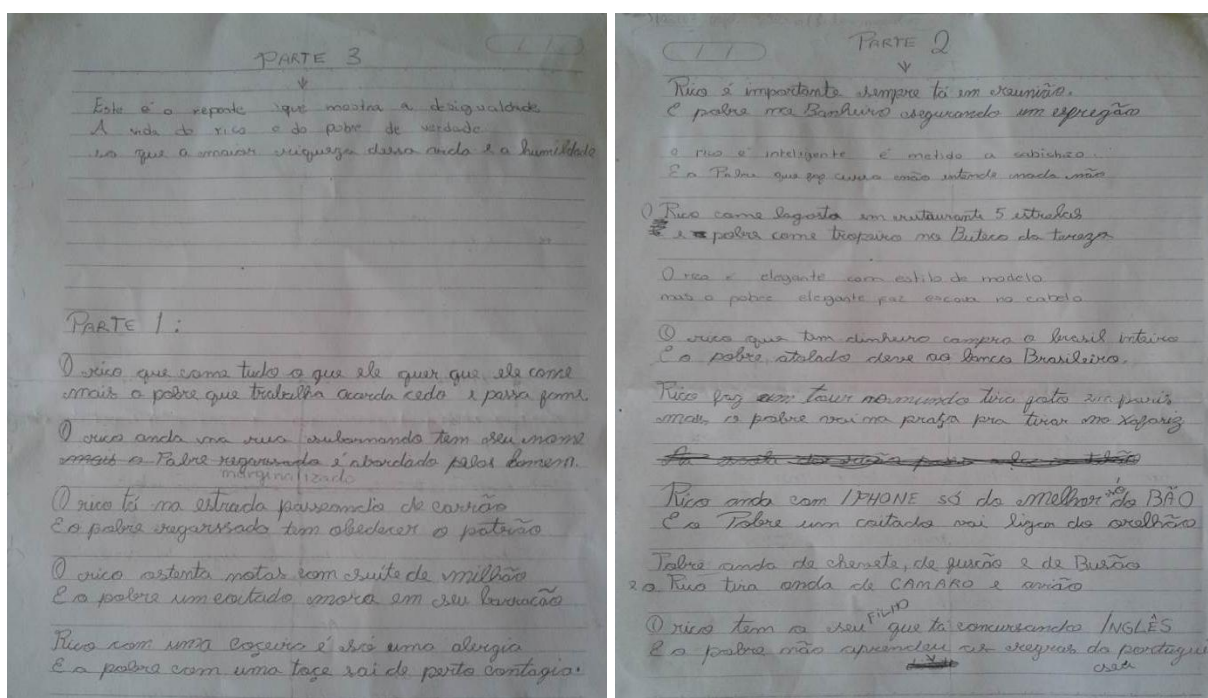 PARTE 3
Este é o reponte que mostra a desigualdade
A vida do rico e do pobre de verdade
so que a maior riqueza dessa vida e a humildade
PARTE 1:
O rico que come tudo o que ele quer que ele come
mais o pobre que trabalha acorda cedo e passa fome.
O rico anda na rua subornando tem seu nome
mais o Pobre é abordado pelos homem.
marginalizado
O rico tá na estrada passeando de carrão
E o pobre regarssado tem obedecer o patrão
O rico ostenta notas com suite de milhão
E o pobre um coitado mora em seu barracão
Rico com uma coçeira é só uma alergia
E o pobre com uma toçe sai de perto contagia.
PARTE 2
Rico é importante sempre tá em reunião.
E pobre no Banheiro asegurando um esfregão
O rico é inteligente é metido a sabichão.
E o Pobre que não intende nada não
O Rico come lagosta em restaurante 5 estrelas
e o pobre come tropeiro no Buteco da tereza
O rico é elegante com estilo de modelo
mas o pobre elegante faz escova no cabelo
O rico que tem dinheiro compra o brasil inteiro
E o pobre atolado deve ao banco Brasileiro.
Rico faz um tour no mundo tira foto em paris
mais o pobre vai na praça pra tirar no Xafariz
Rico anda com IPHONE só do melhor só do BÃO
E o Pobre um coitado vai ligar do orelhão
Pobre anda de chevete, de fuscão e de Busão
e o Rico tira onda de CAMARO e avião
O rico tem o seu FILHO que ta concursando INGLÊS
E o pobre não aprendeu as regras do portugui